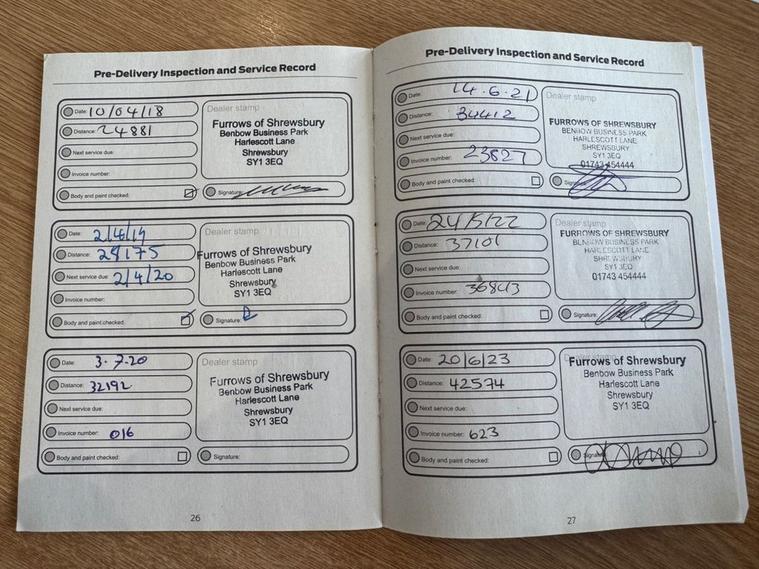 Pre-Delivery Inspection and Service Record
Date: 10/04/18
Distance: 24881
Next service due:
Invoice number:
Body and paint checked:
Dealer stamp
Furrows of Shrewsbury
Benbow Business Park
Harlescott Lane
Shrewsbury
SY1 3EQ
Signature:
Date: 2/4/19
Distance: 28175
Next service due: 2/4/20
Invoice number:
Body and paint checked:
Dealer stamp
Furrows of Shrewsbury
Benbow Business Park
Harlescott Lane
Shrewsbury
SY1 3EQ
Signature:
Date: 3.7.20
Distance: 32192
Next service due:
Invoice number: 016
Body and paint checked:
Dealer stamp
Furrows of Shrewsbury
Benbow Business Park
Harlescott Lane
Shrewsbury
SY1 3EQ
Signature:
26
Pre-Delivery Inspection and Service Record
Date: 14.6.21
Distance: 34412
Next service due:
Invoice number: 23827
Body and paint checked:
Dealer stamp
FURROWS OF SHREWSBURY
BENBOW BUSINESS PARK
HARLESCOTT LANE
SHREWSBURY
SY1 3EQ
01743 454444
Date: 24/5/22
Distance: 37101
Next service due:
Invoice number: 36843
Body and paint checked:
Dealer stamp
FURROWS OF SHREWSBURY
BENBOW BUSINESS PARK
HARLESCOTT LANE
SHREWSBURY
SY1 3EQ
01743 454444
Signature:
Date: 20/6/23
Distance: 42574
Next service due:
Invoice number: 623
Body and paint checked:
Furrows of Shrewsbury
Benbow Business Park
Harlescott Lane
Shrewsbury
SY1 3EQ
Signature:
27